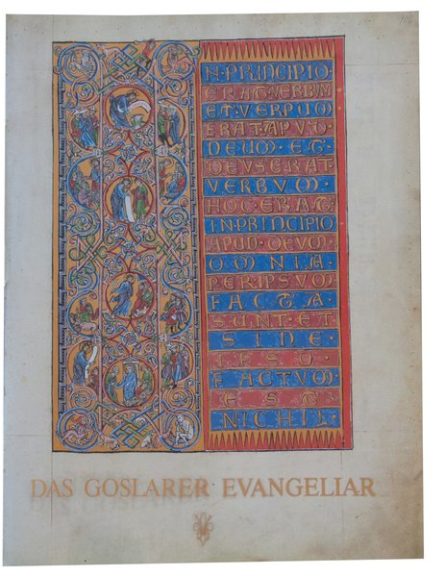 N·PRINCIPIO·
ERAT·VERBUM
ET·VERBUM
ERAT·APUD·
DEUM·ET·
DEUS·ERAT·
VERBUM·
HOC·ERAT·
IN·PRINCIPIO
APUD·DEUM·
OMNIA·
PER IPSUM
FACTA·
SUNT·ET·
SINE·
IPSO·
FACTUM
EST
NICHIL
DAS GOSLARER EVANGELIAR